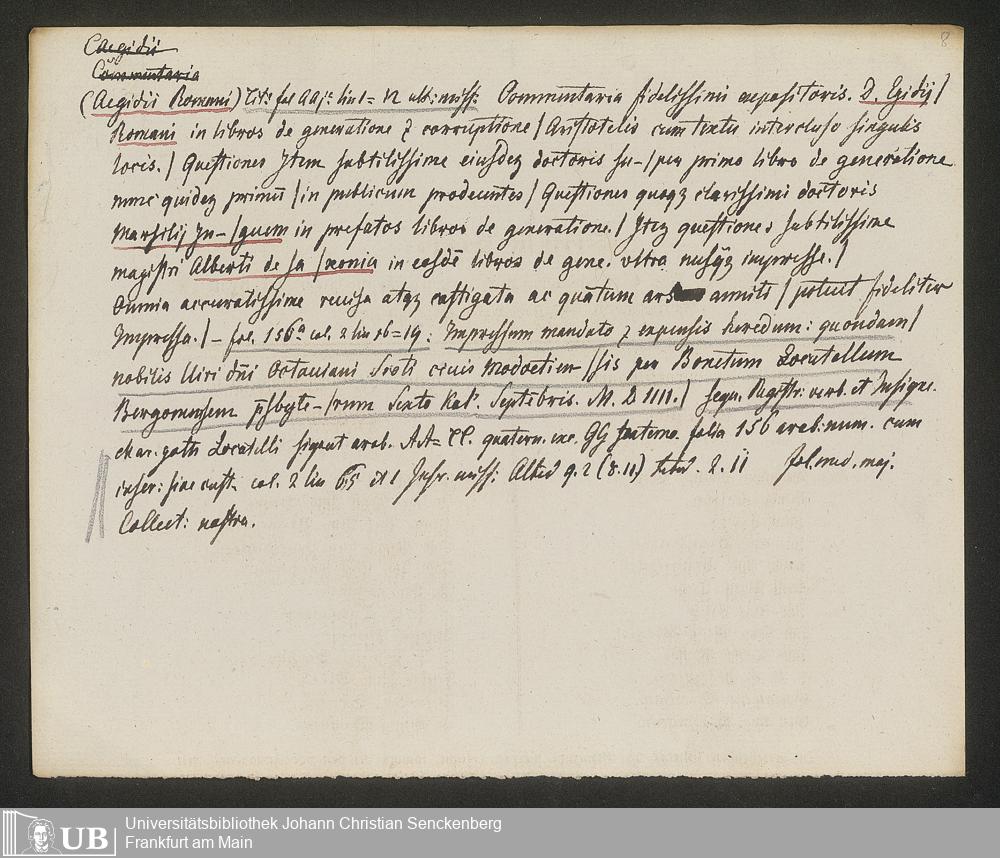 8
Caegidii
Commentaria
(Aegidii Romani) Tit: fol AAjª: lin 1= 12 alb: miss: Commentaria fidelissimi expositoris. D. Egidij/
Romani in libros de generatione ⁊ corruptione / Aristotelis cum textu intercluso singulis
locis. / Questiones Item subtilissime eiusdeȝ doctoris su- / per primo libro de generatione
nunc quideȝ primū / in publicum prodeuntes / Questiones quoqȝ clarissimi doctoris
Marsilij In- / guem in prefatos libros de generatione. / Iteȝ questiones subtilissime
magistri Alberti de sa / xonia in eosdē libros de gene. vltra nusq̄ȝ impresse. /
Omnia accuratissime reuisa atqȝ castigata ac quātum ars anniti / potuit fideliter
Impressa. / – fol. 156ª col. 2 lin 16=19: Impressum mandato ⁊ expensis heredum: quondam /
nobilis Uiri dn̄i Octauiani Scoti ciuis Modoetien / sis per Bonetum Locatellum
Bergomensem p̄sbyte- / rum Sexto Kal'. Septēbris. M. D IIII. / sequ. Registr: verb. et Insigne.
char. goth Locatelli signat arab. AA= CC. quatern. exc. GG folia 156 arab: num. cum
inscr: sine cust. col. 2 lin 65 et 1 Infr. miss: 2 (8. 11) 2. 11 fol. med. maj.
Collect: nostra.
UB
Universitätsbibliothek Johann Christian Senckenberg
Frankfurt am Main